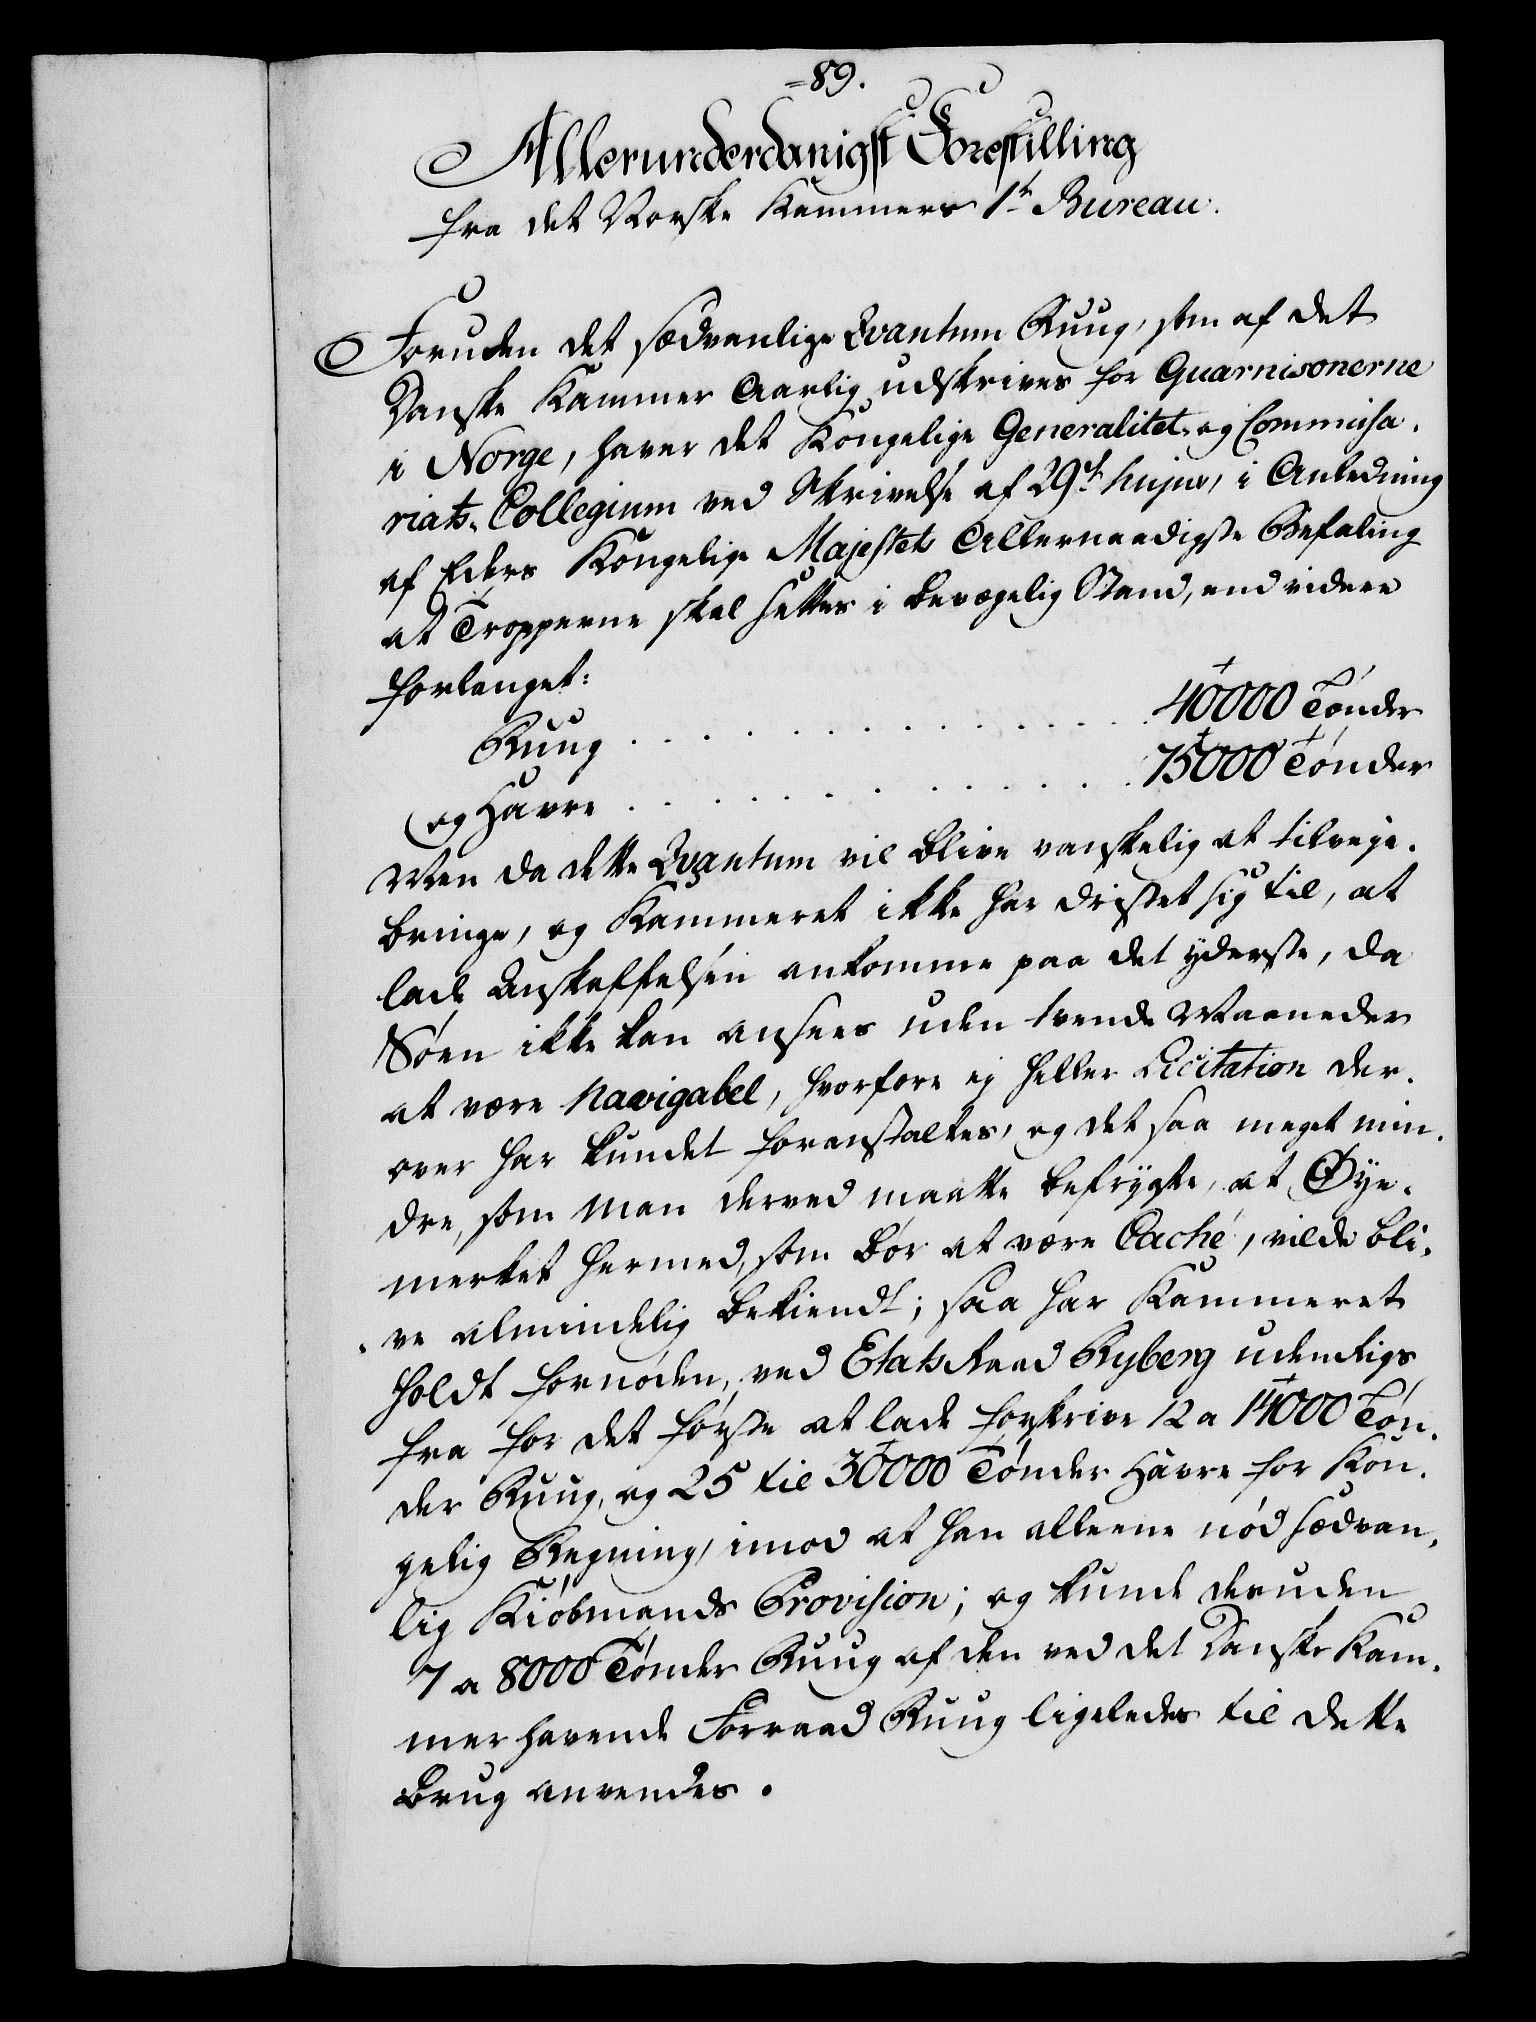 =89.
Allerunderdanigst Forestilling
fra det Norske Kammers 1te Bureau.
Foruden det sædvanlige Qvantum Ruug, som af det
Danske Kammer Aarlig udskrives for Guarnisonerne
i Norge, haver det Kongelige Generalitet- og Commissa-
riats-Collegium ved Skrivelse af 29de hujus, i Anledning
af Eders Kongelige Majestets Allernaadigste Befaling
at Tropperne skal settes i bevægelig Stand, end videre
forlanget:
Ruug . . . . . . . . . . . . . . 40000 Tønder
og Havre . . . . . . . . . . . . . 75000 Tønder
Men da dette Qvantum vil blive vanskelig at tilveje-
bringe, og Kammeret ikke har dristet sig til, at
lade Anskaffelsen ankomme paa det yderste, da
Søen ikke kan ansees uden tvende Maaneder
at være navigabel, hvorfore ej heller Licitation der-
over har kundet foranstaltes, og det saa meget min-
dre, som man derved maatte befrygte, at Øye-
merket hermed, som bør at være Caché, vilde bli-
ve almindelig bekiendt; saa har Kammeret
holdt fornøden, ved Etats Raad Ryberg udenrigs
fra for det første at lade forskrive 12 a 14000 Tøn-
der Ruug, og 25 til 30000 Tønder Havre for Kon-
gelig Regning, imod at han alleene nød sædvan-
lig Kiøbmands Provision; og kunde desuden
7 a 8000 Tønder Ruug af den ved det Danske Kam-
mer havende Forraad Ruug ligeledes til dette
Brug anvendes.